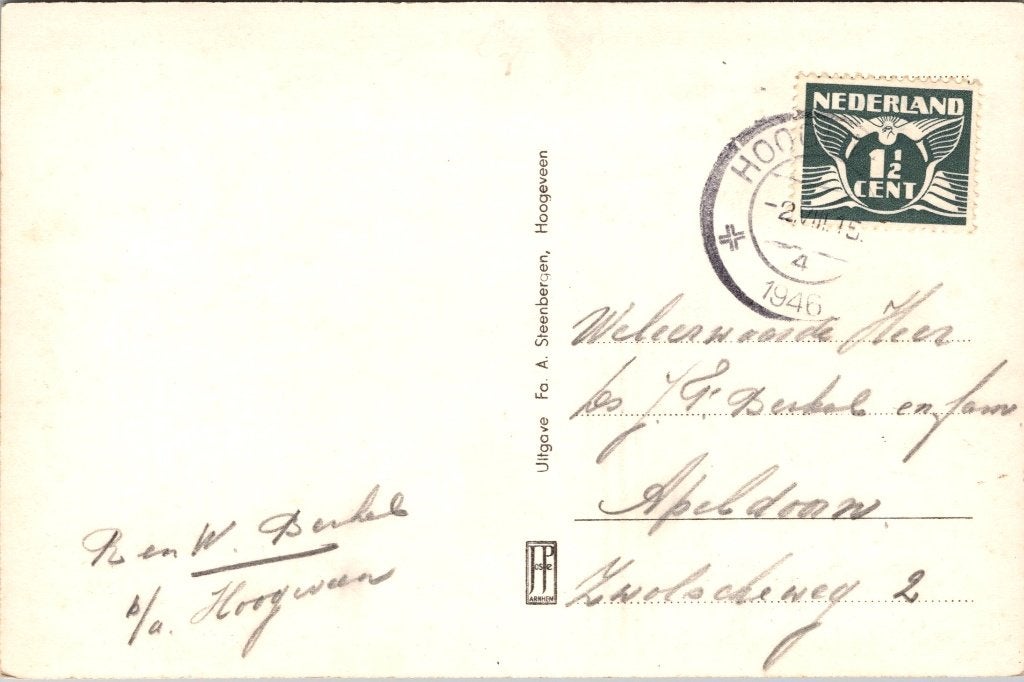 NEDERLAND
1½
CENT
HOO
-2.VIII.15.
4
1946
Uitgave Fa. A. Steenbergen, Hoogeveen
Weleerwaarde Heer
Ds J. F. Berkel en fam
Apeldoorn
Zwolscheweg 2
R en W. Berkel
p/a. Hoogeveen
JosPe
ARNHEM